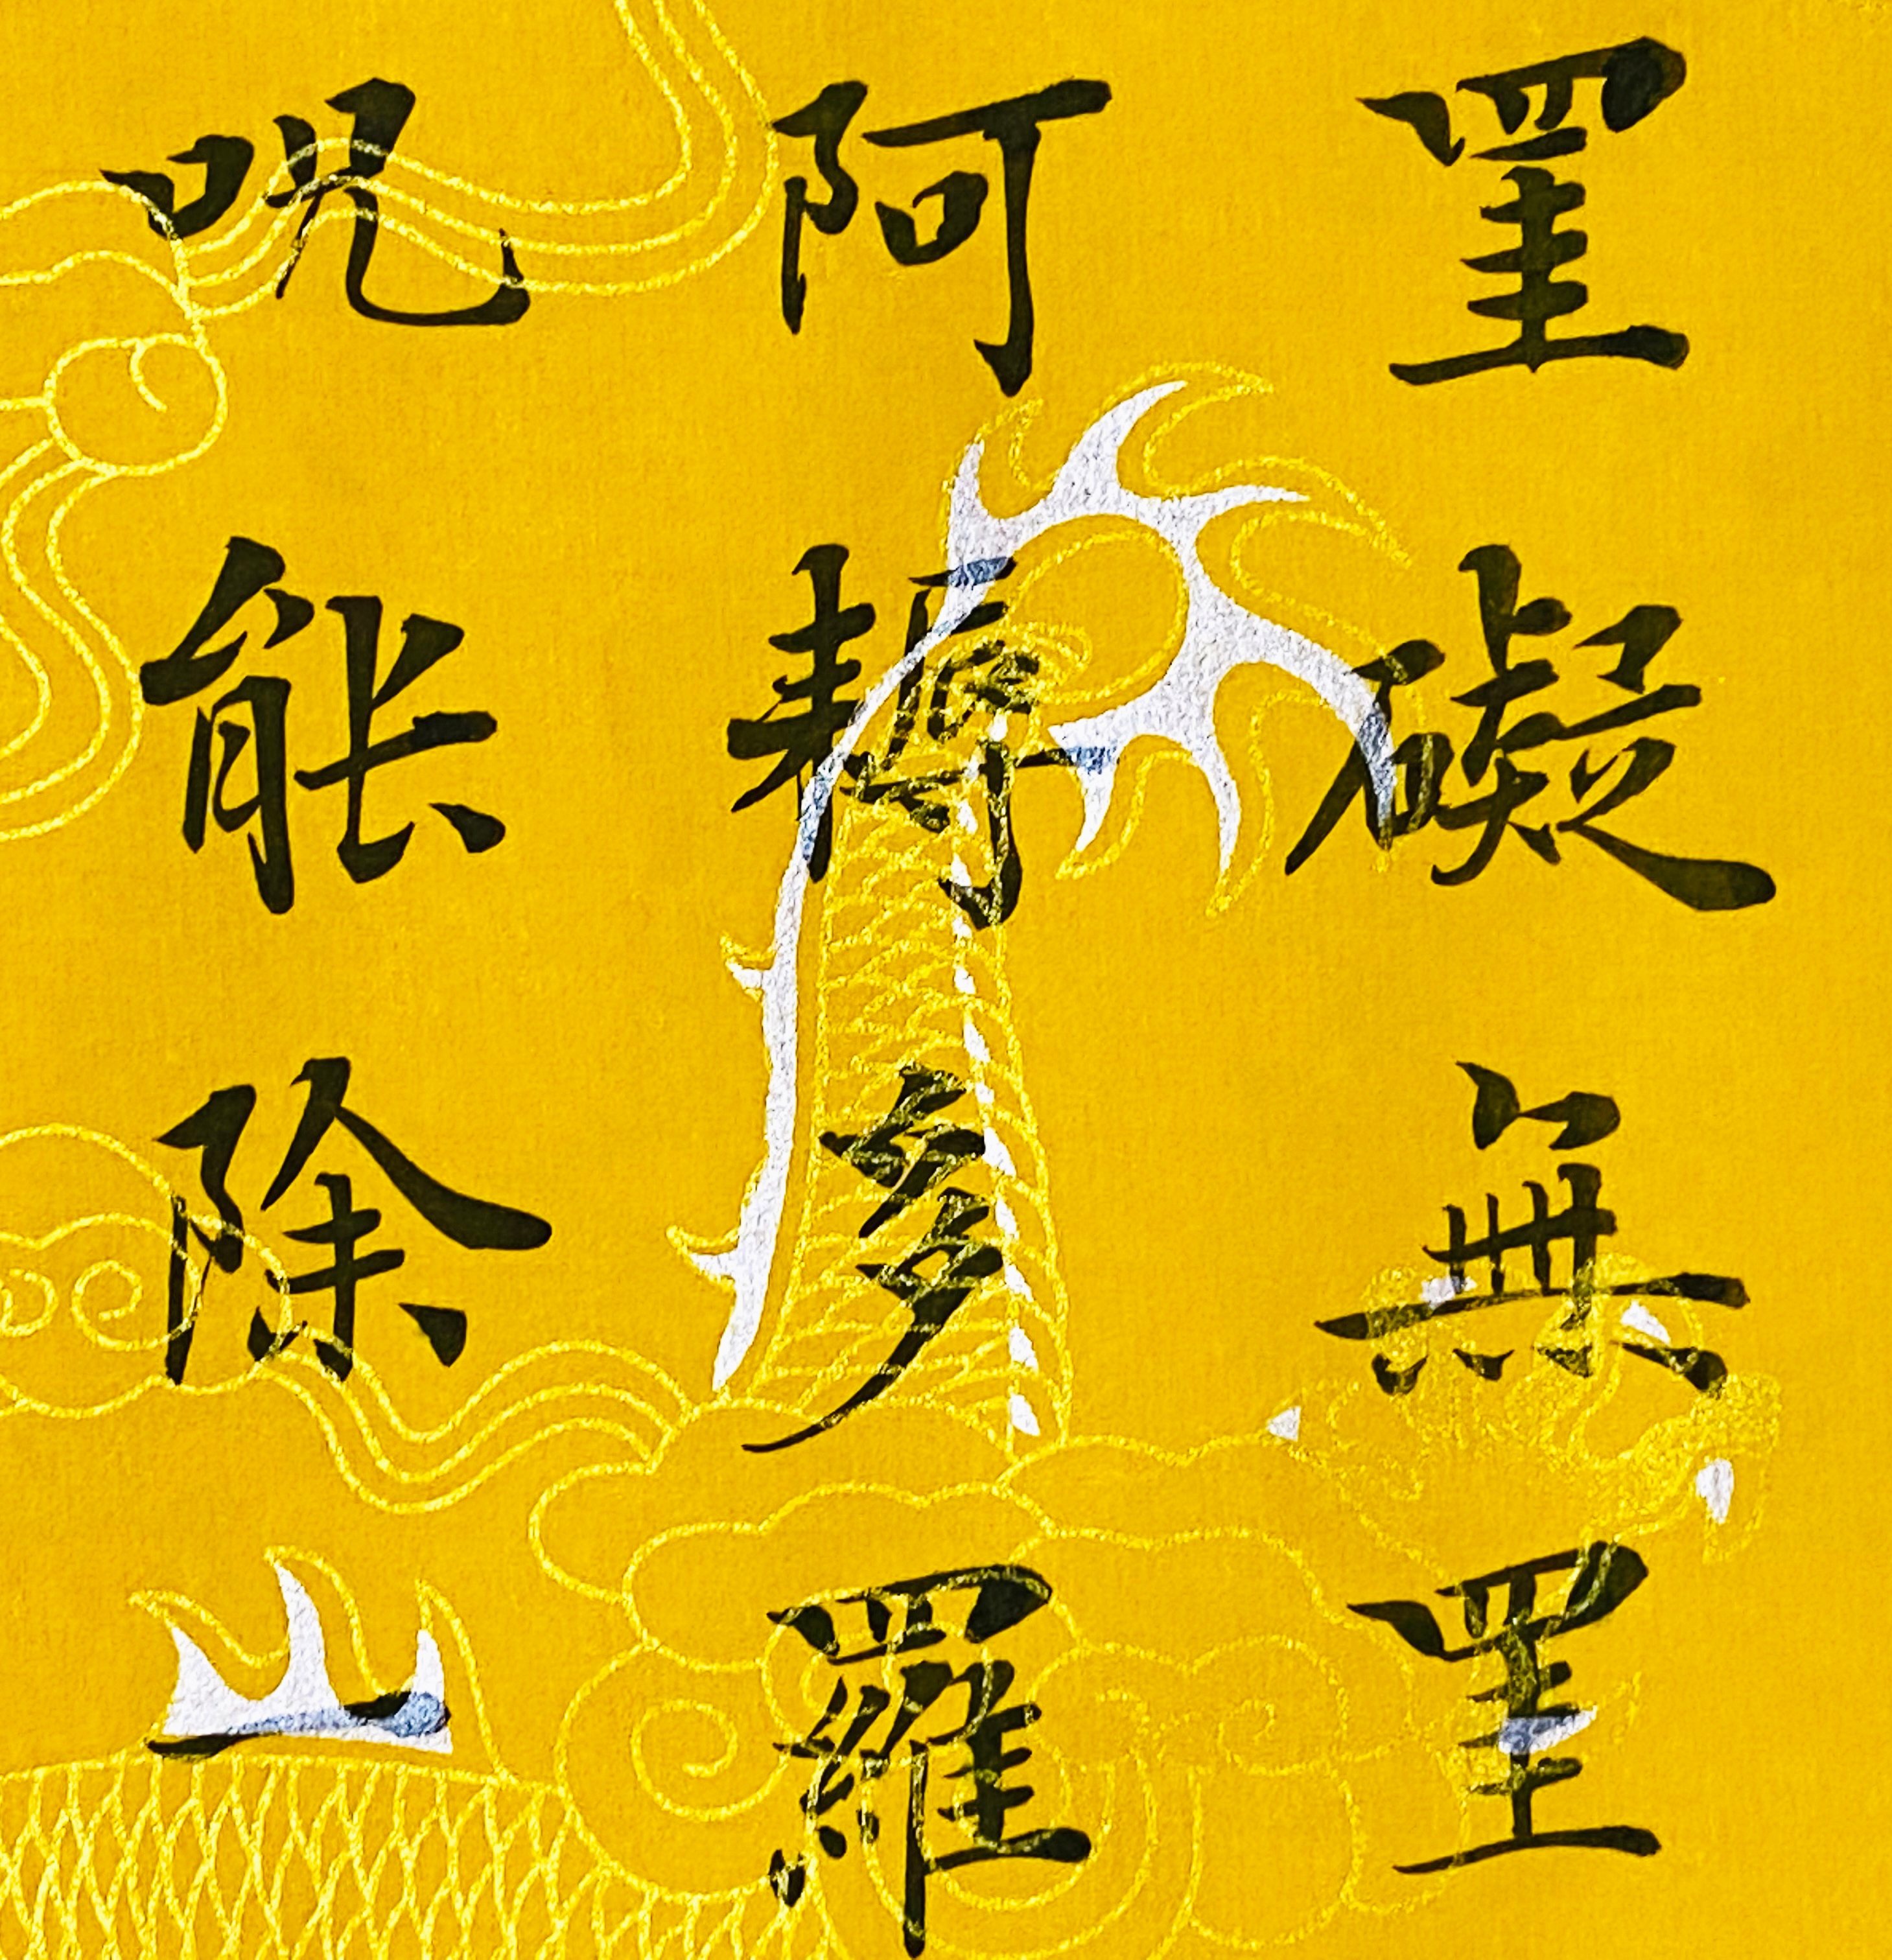 罣礙無罣
阿耨多羅
呪能除一